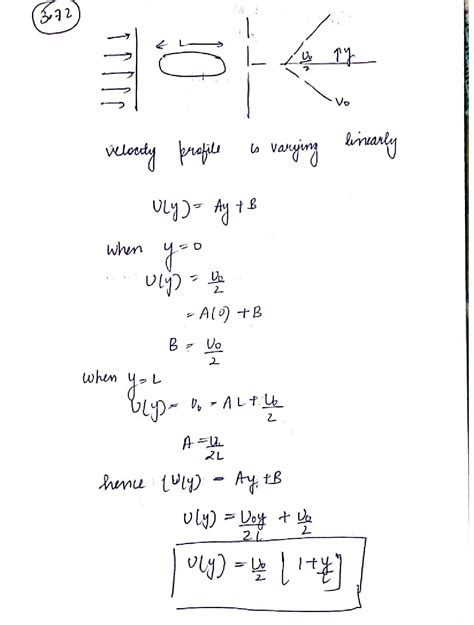 3.72
L
U₀/2 ↑y
V₀
velocity profile is varying linearly
U(y) = Ay + B
when y=0
U(y) = U₀/2
= A(0) + B
B = U₀/2
when y=L
U(y) = U₀ = AL + U₀/2
A = U/2L
hence (U(y) = Ay + B
U(y) = U₀y/2L + U₀/2
U(y) = U₀/2 [1 + y/L]